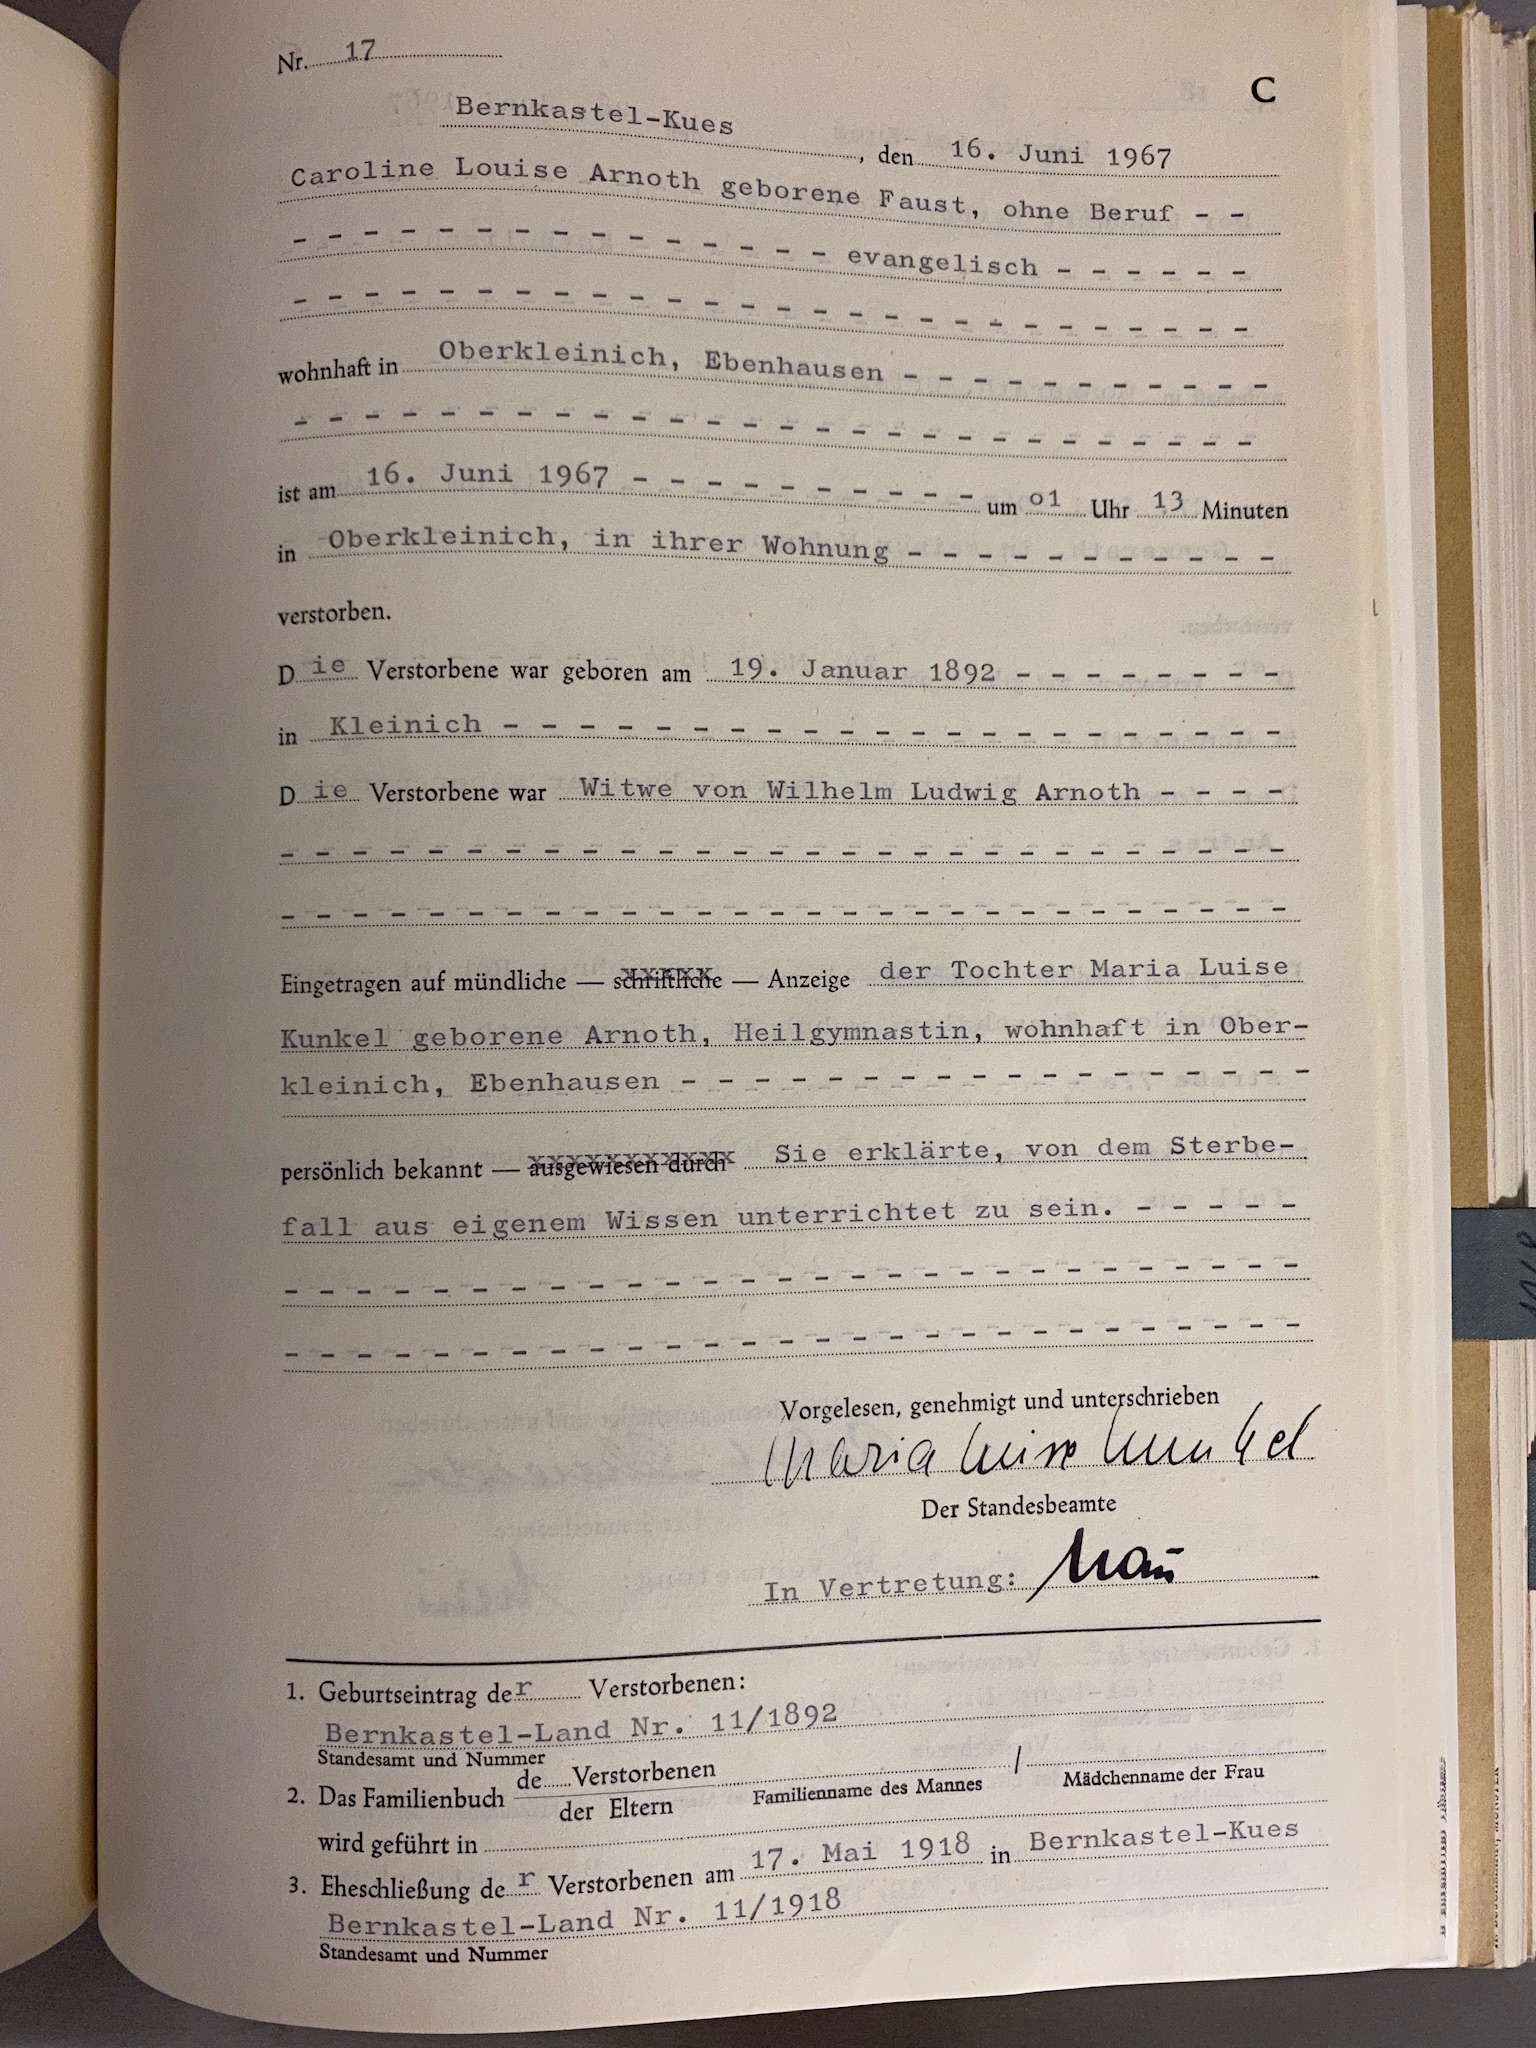 Nr. 17
C
Bernkastel-Kues, den 16. Juni 1967
Caroline Louise Arnoth geborene Faust, ohne Beruf - -
- - - - - - - - - - - - - - - evangelisch - - - - - -
- - - - - - - - - - - - - - - - - - - - - - - - - -
wohnhaft in Oberkleinich, Ebenhausen - - - - - - - - - -
- - - - - - - - - - - - - - - - - - - - - - - - - -
ist am 16. Juni 1967 - - - - - - - - - - um o1 Uhr 13 Minuten
in Oberkleinich, in ihrer Wohnung - - - - - - - - - -
verstorben.
Die Verstorbene war geboren am 19. Januar 1892 - - - - - - - -
in Kleinich - - - - - - - - - - - - - - - - - - - - -
Die Verstorbene war Witwe von Wilhelm Ludwig Arnoth - - - -
- - - - - - - - - - - - - - - - - - - - - - - - - - - -
- - - - - - - - - - - - - - - - - - - - - - - - - - - -
Eingetragen auf mündliche — schriftliche — Anzeige der Tochter Maria Luise
Kunkel geborene Arnoth, Heilgymnastin, wohnhaft in Ober-
kleinich, Ebenhausen - - - - - - - - - - - - - - - - -
persönlich bekannt — ausgewiesen durch Sie erklärte, von dem Sterbe-
fall aus eigenem Wissen unterrichtet zu sein. - - - - -
- - - - - - - - - - - - - - - - - - - - - - - - - - - -
- - - - - - - - - - - - - - - - - - - - - - - - - - - -
Vorgelesen, genehmigt und unterschrieben
Maria Luise Kunkel
Der Standesbeamte
In Vertretung:
1. Geburtseintrag der Verstorbenen:
Bernkastel-Land Nr. 11/1892
Standesamt und Nummer
2. Das Familienbuch de Verstorbenen
der Eltern
Familienname des Mannes / Mädchenname der Frau
wird geführt in
3. Eheschließung der Verstorbenen am 17. Mai 1918 in Bernkastel-Kues
Bernkastel-Land Nr. 11/1918
Standesamt und Nummer